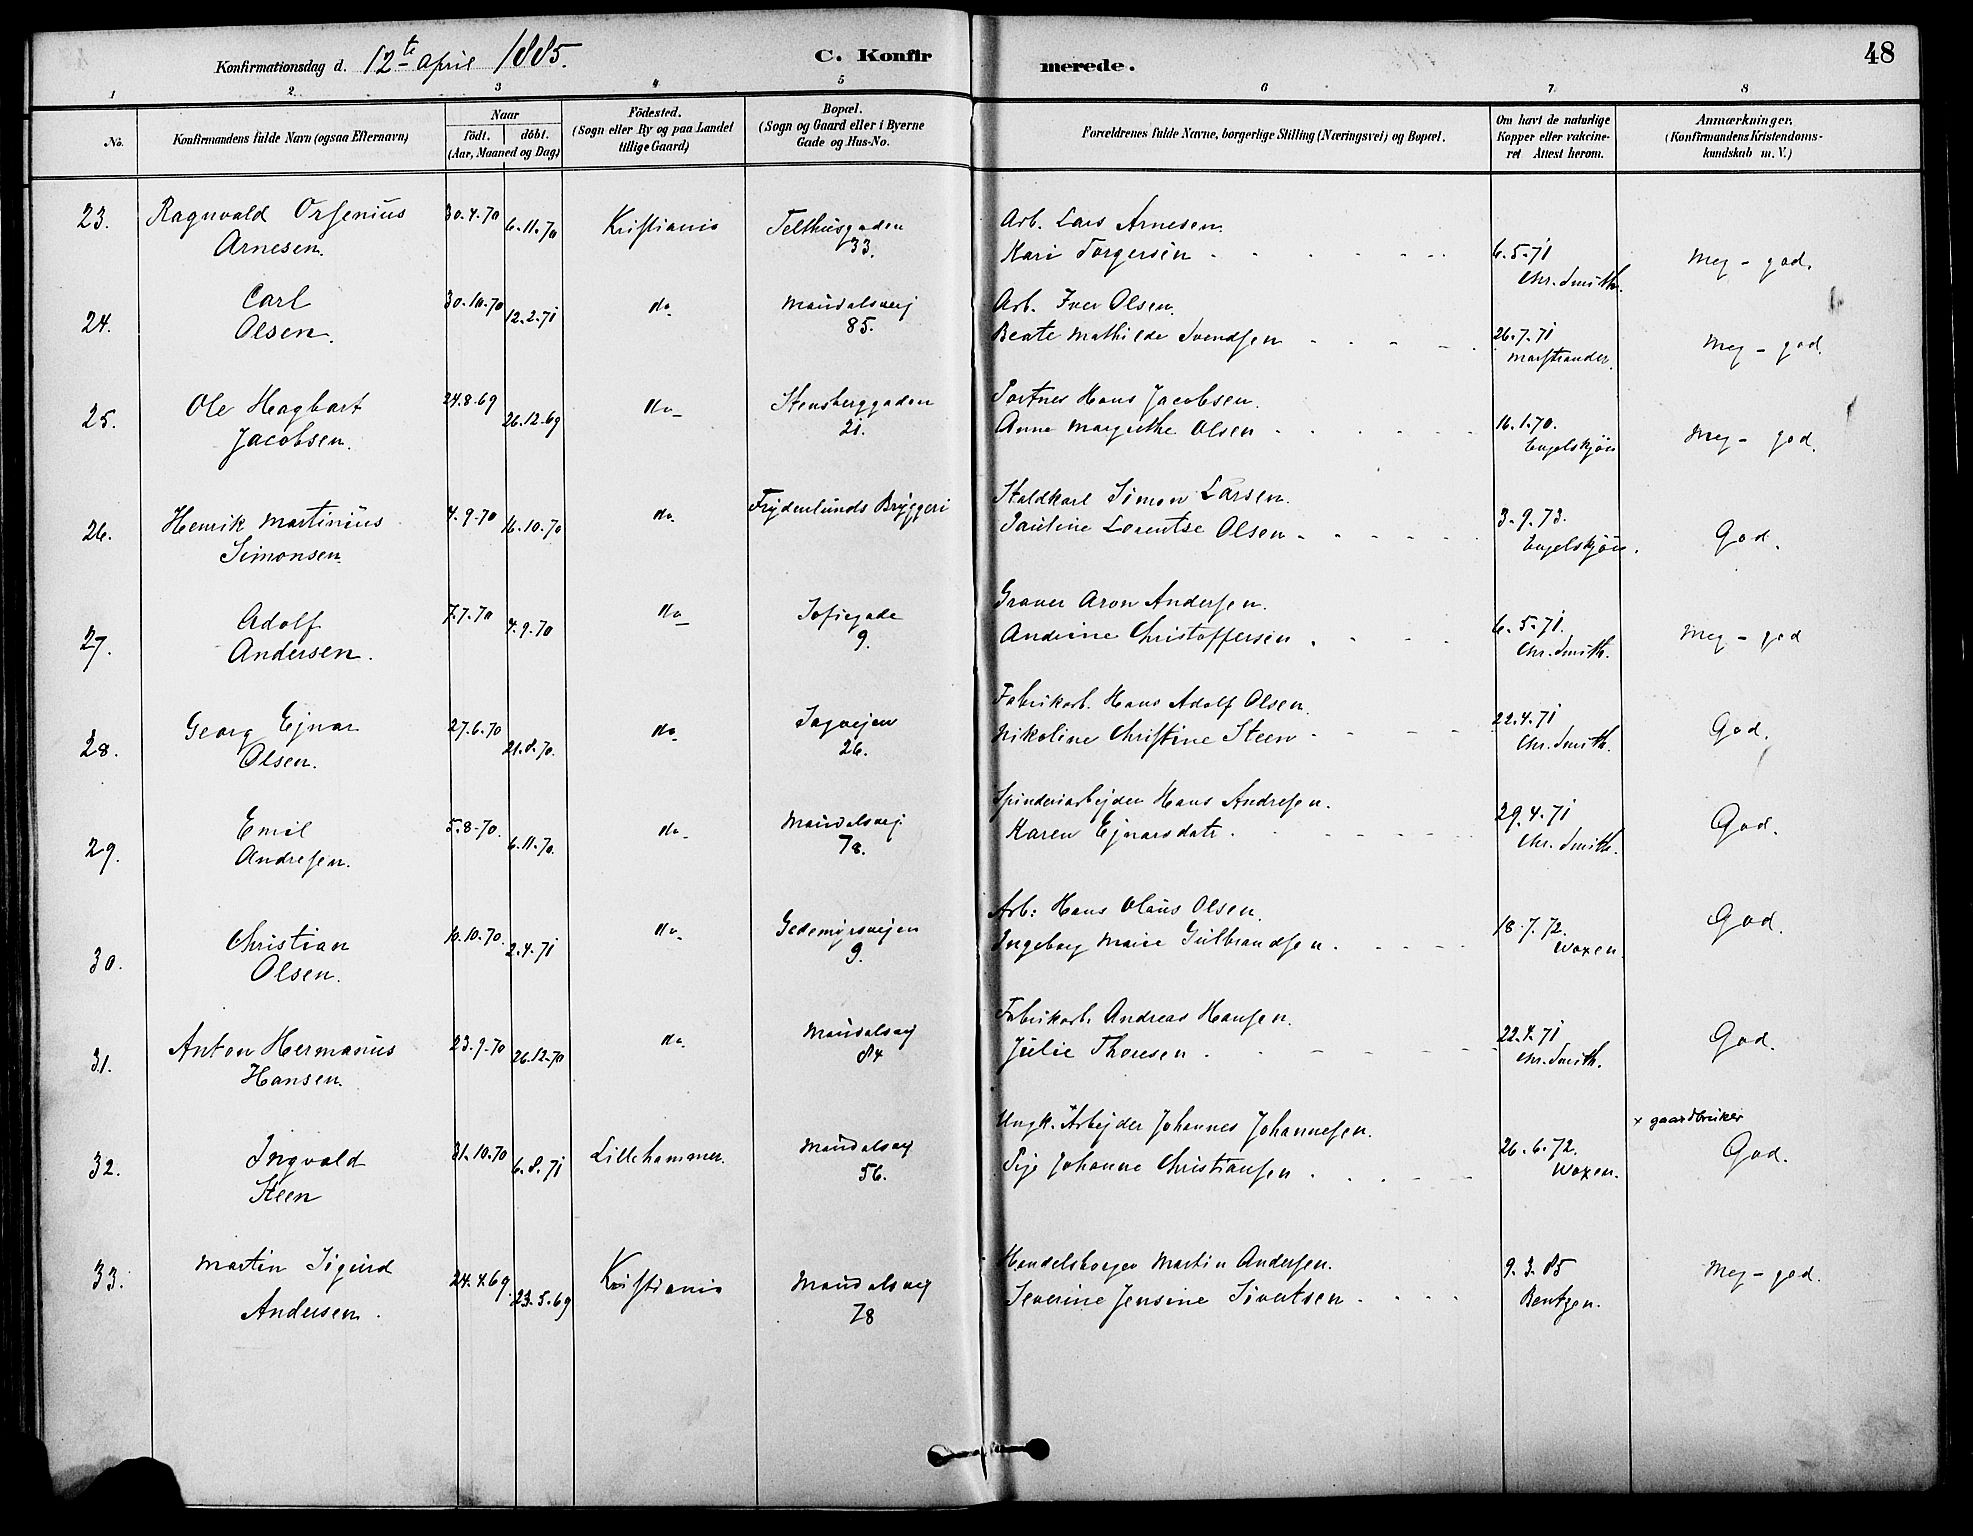 Konfirmationsdag d. 12te April 1885.
C. Konfirmerede.
48
1 2 3 4 5 6 7 8
No.
Konfirmandens fulde Navn (ogsaa Efternavn)
Naar
födt. döbt.
(Aar, Maaned og Dag)
Födested.
(Sogn eller By og paa Landet
tillige Gaard)
Bopæl.
(Sogn og Gaard eller i Byerne
Gade og Hus-No.
Forældrenes fulde Navne, borgerlige Stilling (Næringsvei) og Bopæl.
Om havt de naturlige
Kopper eller vakcine-
ret Attest herom.
Anmærkninger.
(Konfirmandens Kristendoms-
kundskab m. V.)
23. Ragnvald Orsenius 30.4.70 6.11.70 Kristiania Telthusgaden Arb. Lars Arnesen.
Arnesen. 33. Kari Torgersen 6.5.71 Meg-god.
Chr. Smith.
24. Carl 30.10.70 12.2.71 do Maridalsvej Arb. Iver Olsen.
Olsen. 85. Beate Mathilde Svendsen 26.7.71 Meg-god.
Marstrander.
25. Ole Hagbart 24.8.69 26.12.69 do Stensberggaden Portner Hans Jacobsen.
Jacobsen. 21. Anne Margrethe Olsen 16.1.70. Meg-god.
Engelskjøn
26. Henrik Martinius 4.9.70 16.10.70 do Frydenlunds Bryggeri Staldkarl Simon Larsen.
Simonsen. Pauline Lorentse Olsen 3.9.73. God.
Engelskjøn.
27. Adolf 7.7.70 4.9.70 do Sofiegade Graver Aron Andersen.
Andersen. 9. Andrine Christoffersen 6.5.71. Meg-god
Chr. Smith.
28. Georg Ejnar 27.6.70 21.8.70. do Sagvejen Fabrikarb. Hans Adolf Olsen.
Olsen. 26. Nikoline Christine Steen 22.4.71 God.
Chr. Smith.
29. Emil 5.8.70. 6.11.70. do Maridalsvej Spinderiarbejder Hans Andresen.
Andresen. 78. Karen Ejnarsdatr. 29.4.71 God.
Chr. Smith.
30. Christian 10.10.70. 2.4.71 do Gedemyrsvejen Arb: Hans Olaus Olsen.
Olsen. 9. Ingeborg Marie Gulbrandsen. 18.7.72. God.
Woxen.
31. Anton Hermanus 23.9.70 26.12.70 do Maridalsvej Fabrikarb. Andreas Hansen.
Hansen. 84 Julie Thoresen 22.4.71 God.
Chr. Smith.
32. Ingvald 31.10.70 6.8.71 Lillehammer. Maridalsvej Ungk. x Arbejder Johannes Johannesen. x gaardbruker
Steen 56. Pige Johanne Christiansen 26.6.72. God.
Woxen.
33. Martin Sigurd 24.4.69. 23.5.69 Kristiania Maridalsvej Handelsborger Martin Andersen. 9.3.85 Meg-god.
Andersen. 78 Severine Jensine Sivertsen Bentzen.